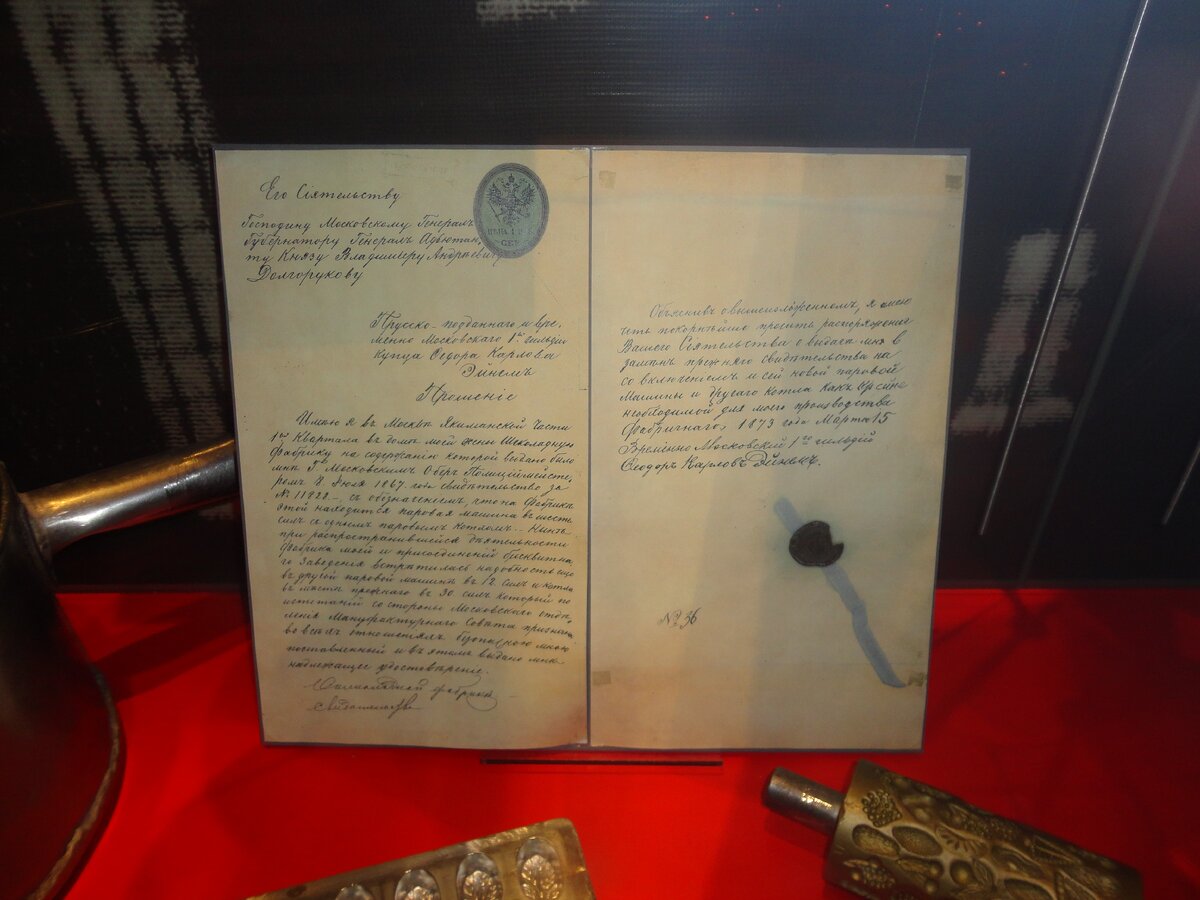 Его Сіятельству
Господину Московскому Генералъ
Губернатору Генералъ Адъютан,
ту Князу Владимиру Андреевичу
Долгорукову
ЦѢНА
СЕР.
Прусско-подданнаго и вре,
менно Московскаго 1ой гильдіи
купца Федора Карлова
Эйнемъ
Прошеніе
Имѣю я въ Москвѣ Якиманской Части
1го Квартала въ домѣ моей жены Шоколадную
фабрику на содержаніе которой выдано было
мнѣ Г. Московскимъ Оберъ Полиціймейсте,
ромъ 8 Іюля 1867 года свидѣтельство за
№ 11828 - съ обозначеніемъ, что на фабрикѣ
этой находится паровая машина въ шесть
силъ съ однимъ паровымъ котломъ. - Нынѣ
при распространившейся дѣятельности
фабрики моей и присоединеній бисквитна,
го Заведенія встратилась надобность еще
въ другой паровой машинѣ въ 12 силъ и котла
въ мѣсто прежнаго въ 30 силъ который по
испытаній со стороны Московскаго отдѣ,
ленія Мануфактурнаго Совѣта признанъ
во всѣхъ отношеніяхъ мною
поставленный и въ этомъ выдано мнѣ
надлежащее удостовѣреніе.
фабрики
Объяснивъ о вышеизложенномъ, я имѣю
честь покорнѣйше просить распоряженія
Вашего Сіятельства о выдачѣ мнѣ въ
замѣнъ прежняго свидѣтельства на
со включеніемъ и сей новой паровой
Машины и другаго котла какъ
необходимой для моего производства
фабричнаго, 1873 года Марта 15
Временно Московскій 1ой гильдій
Феодоръ Карловъ Эйнемъ.
№ 36